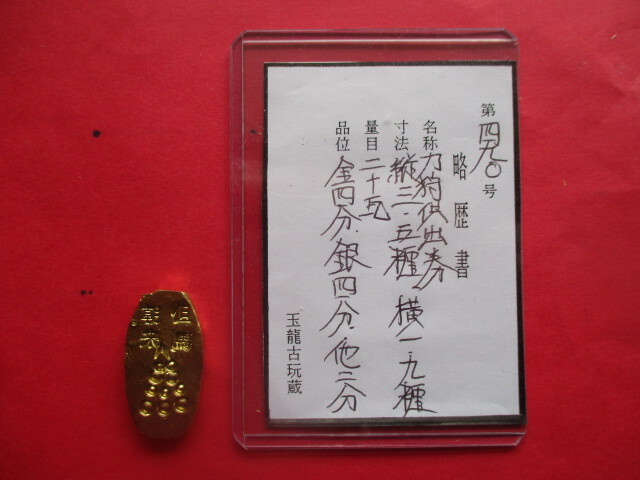 第四九〇号
略歴書
名称 刀狩供出券
寸法 縦三・五糎 横一・九糎
量目 二十瓦
品位 金四分・銀四分・他二分
玉龍古玩蔵
但馬
朝来